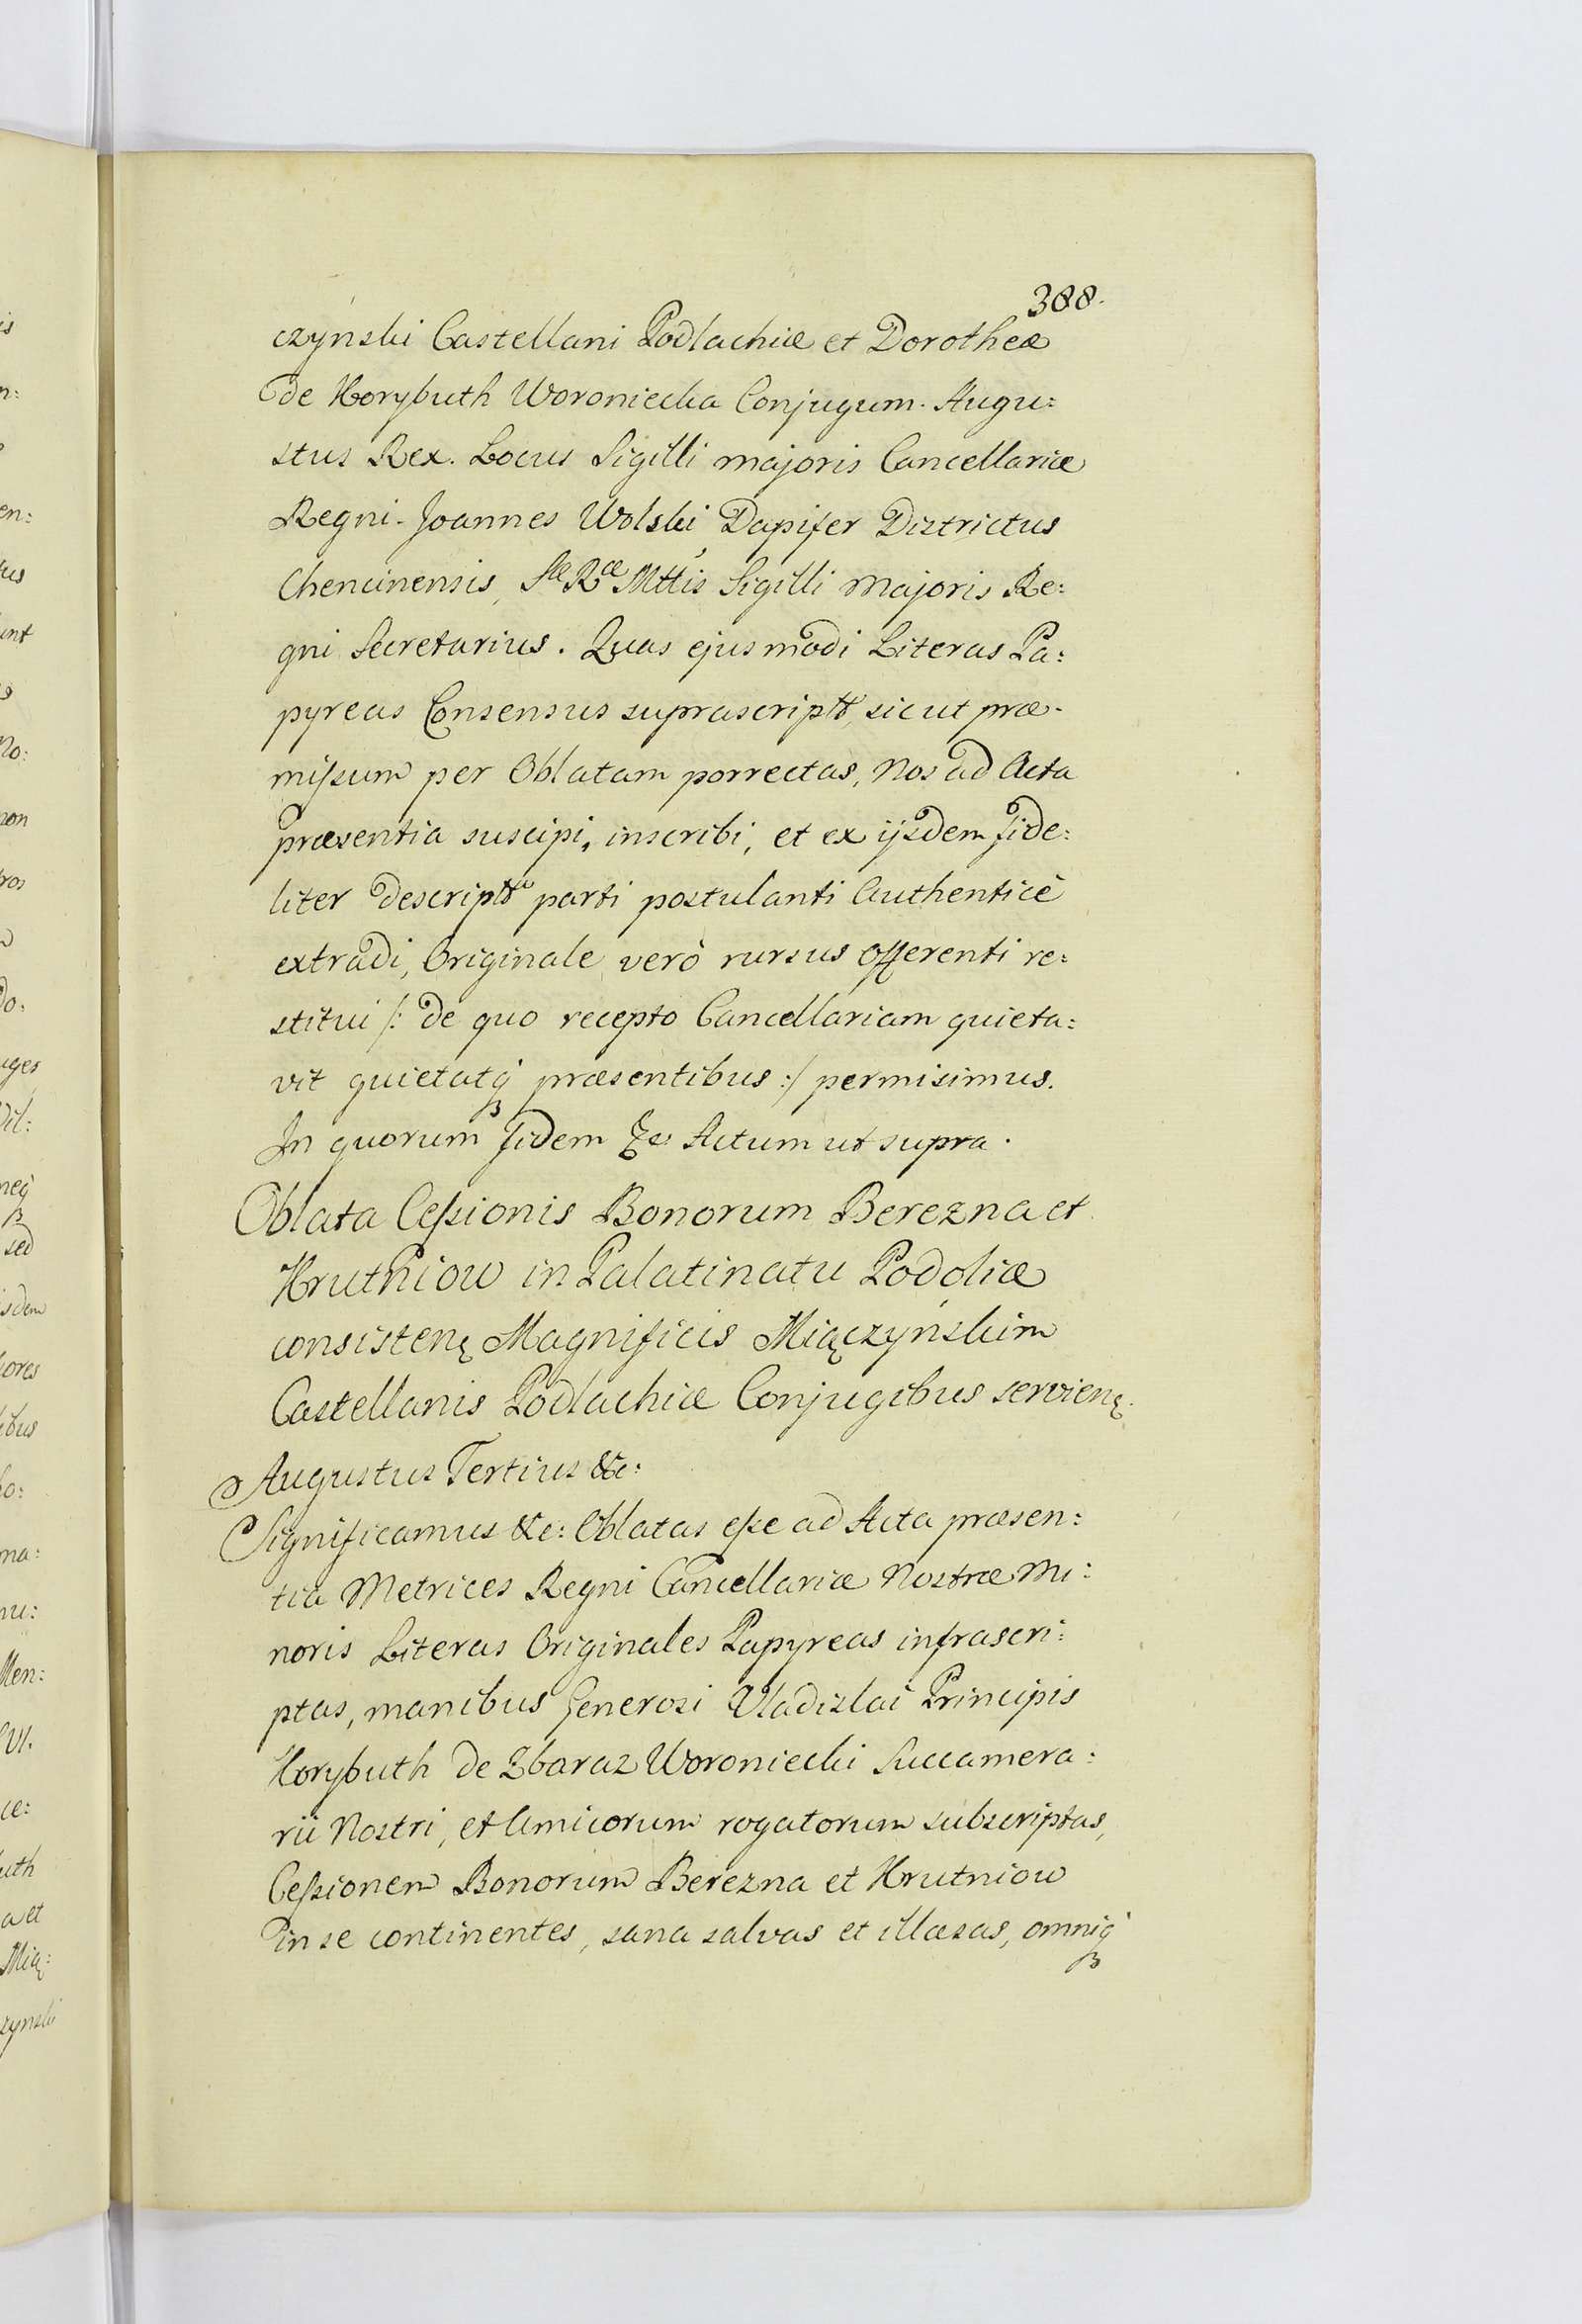 388.
czynski Castellani Podlachiæ et Dorotheæ
de Korybuth Woroniecka Conjugum. Augu:
stus Rex. Locus Sigilli majoris Cancellariæ
Regni. Joannes Wolski Dapifer Districtus
Chencinensis, Sæ Ræ Mttis Sigilli Majoris Re:
gni Secretarius. Quas ejusmodi Literas Pa:
pyreas Consensus suprascript, sicut præ-
miſsum per Oblatam porrectas, Nos ad Acta
præsentia suscipi, inscribi, et ex ijsdem fide:
liter descript parti postulanti Authenticè
extradi, Originale verò rursus Offerenti re:
stitui /: de quo recepto Cancellariam quieta:
vit quietatq præsentibus :/ permisimus.
In quorum fidem &c Actum ut supra.
Oblata Ceſsionis Bonorum Berezna et
Krutniow in Palatinatu Podoliæ
consisten Magnificis Miączynskim
Castellanis Podlachiæ Conjugibus servien.
Augustus Tertius &c:
Significamus &c: Oblatas eſse ad Acta præsen:
tia Metrices Regni Cancellariæ Nostræ Mi:
noris Literas Originales Papyreas infrascri:
ptas, manibus Generosi Vladislai Principis
Korybuth de Zbaraz Woroniecki Succamera:
rii Nostri, et Amicorum rogatorum subscriptas,
Ceſsionem Bonorum Berezna et Krutniow
in se continentes, sana salvas et illæsas, omniq
is
n:
en:
tus
unt
No:
non
ros
Do:
uges
Dil:
neq
sed
isdem
iores
ibus
ho:
ma:
nu:
Men:
ce:
uth
a et
Mią:
zynski